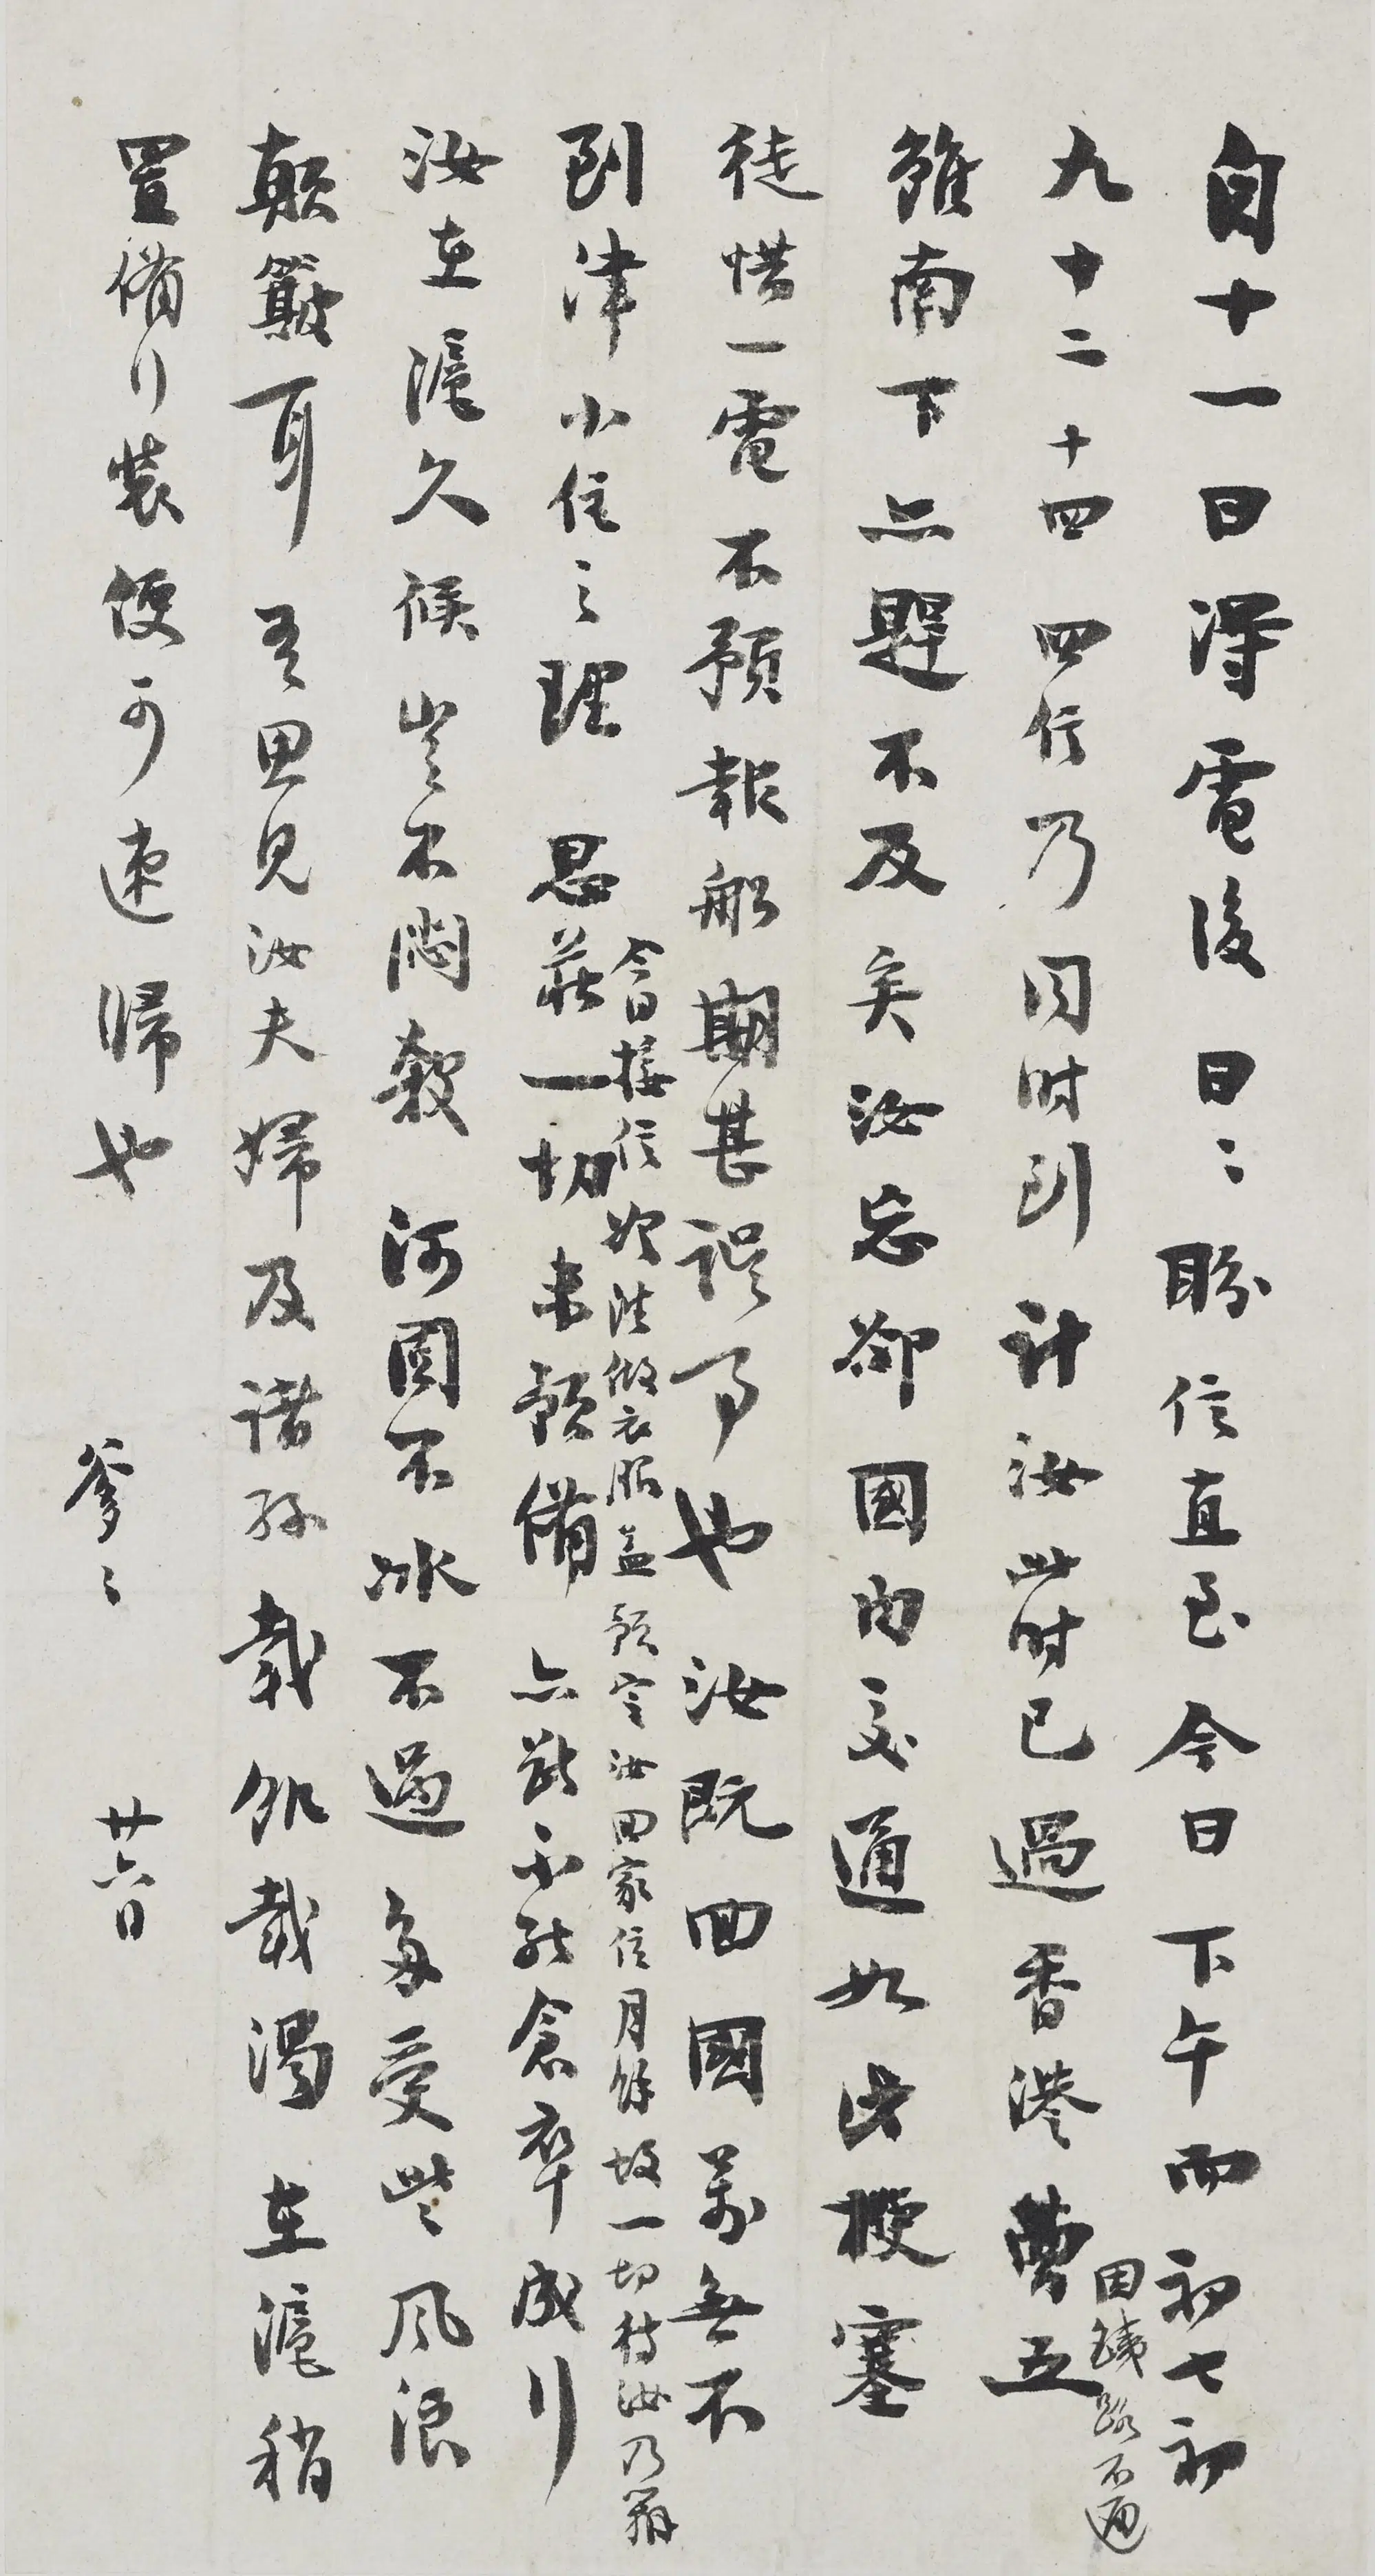 自十一日得電後日:盼信直至今日下午而初七初
九十二十四四信乃同时到计汝此时已過香港曹五
因鐵路不通
雖南下亦趕不及矣汝忘卻國内交通如此梗塞
徒惜一電不預報船期甚誤事也汝既回國萬無不
到津小住之理思莊一切未預備亦斷不能倉卒成行
今日接信始法做衣服並預定汝回家住月餘故一切待汝乃辦
汝在滬久候豈不悶殺河固不冰不過多受些風浪
顛簸耳吾思見汝夫婦及諸孫載飢載渴在滬稍
置備行裝便可速歸也
爹々
廿六日